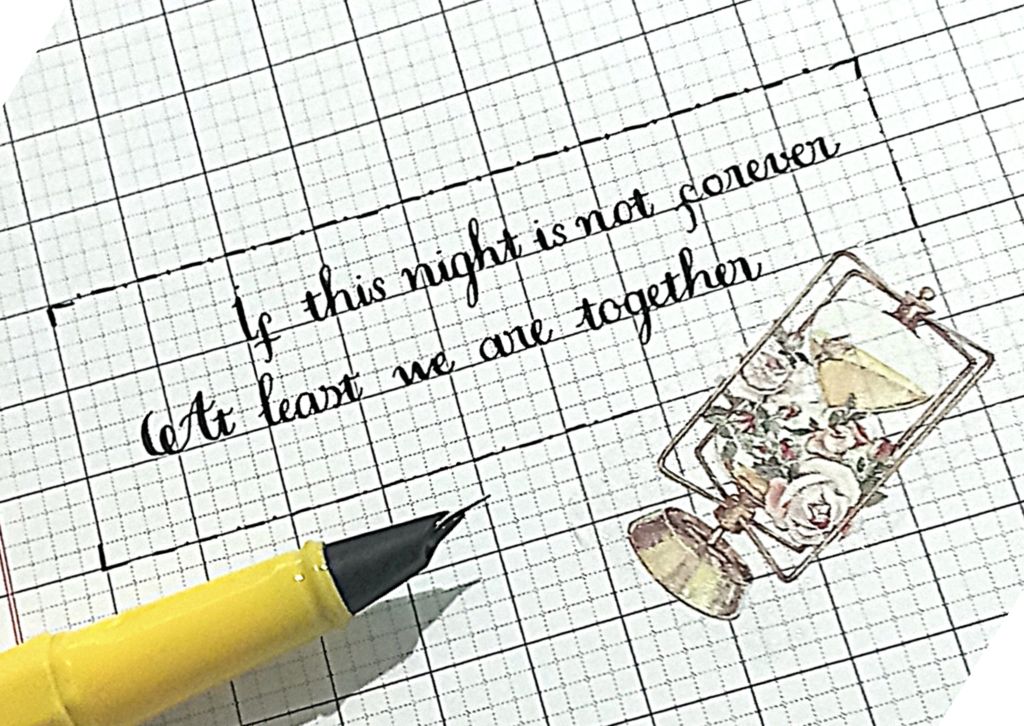 If this night is not forever
At least we are together